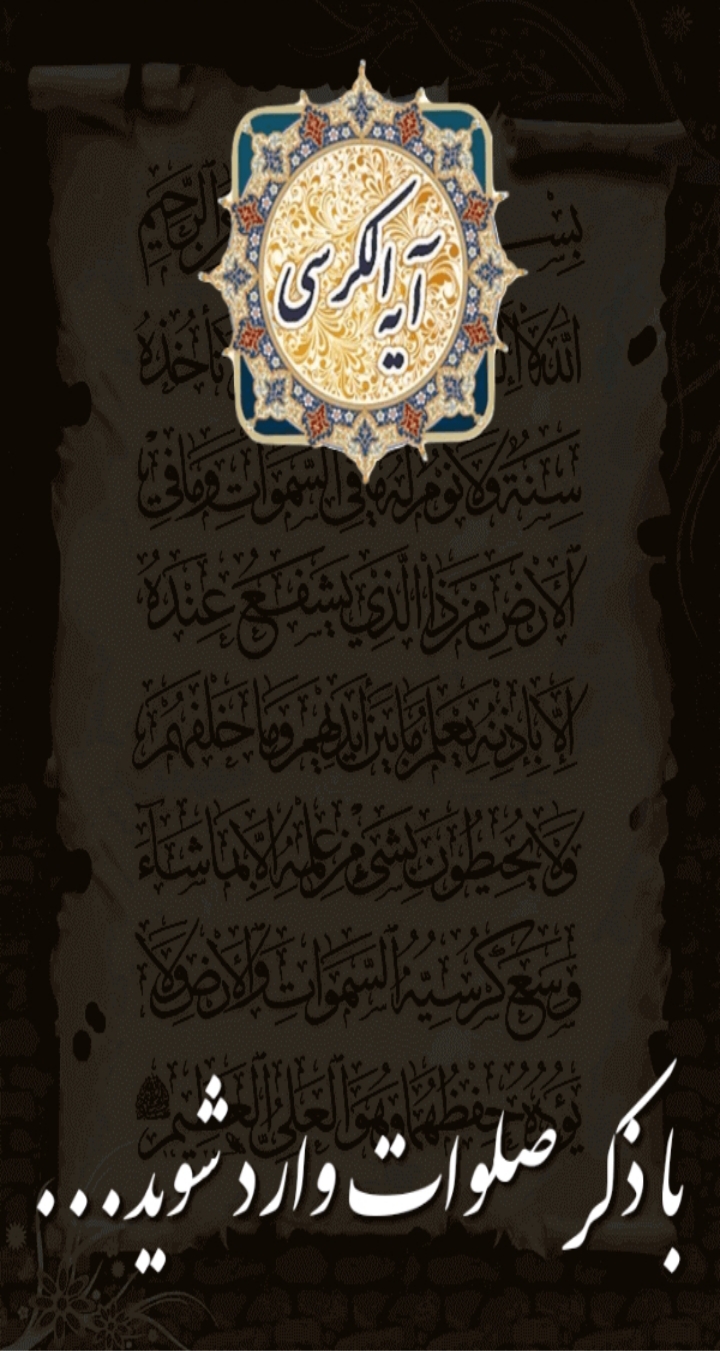 آیه الکرسی
بِسـ الرَّحیمِ
اللَّهُ لَا إِلَـ تَأْخُذُهُ
سِنَةٌ وَلَا نَوْمٌ لَهُ مَا فِي السَّمَوَاتِ وَمَا فِي
الْأَرْضِ مَنْ ذَا الَّذِي يَشْفَعُ عِنْدَهُ
إِلَّا بِإِذْنِهِ يَعْلَمُ مَا بَيْنَ أَيْدِيهِمْ وَمَا خَلْفَهُمْ
وَلَا يُحِيطُونَ بِشَيْءٍ مِنْ عِلْمِهِ إِلَّا بِمَا شَاءَ
وَسِعَ كُرْسِيُّهُ السَّمَوَاتِ وَالْأَرْضَ وَلَا
يَؤُدُهُ حِفْظُهُمَا وَهُوَ الْعَلِيُّ الْعَظِيمُ
با ذکر صلوات وارد شوید...